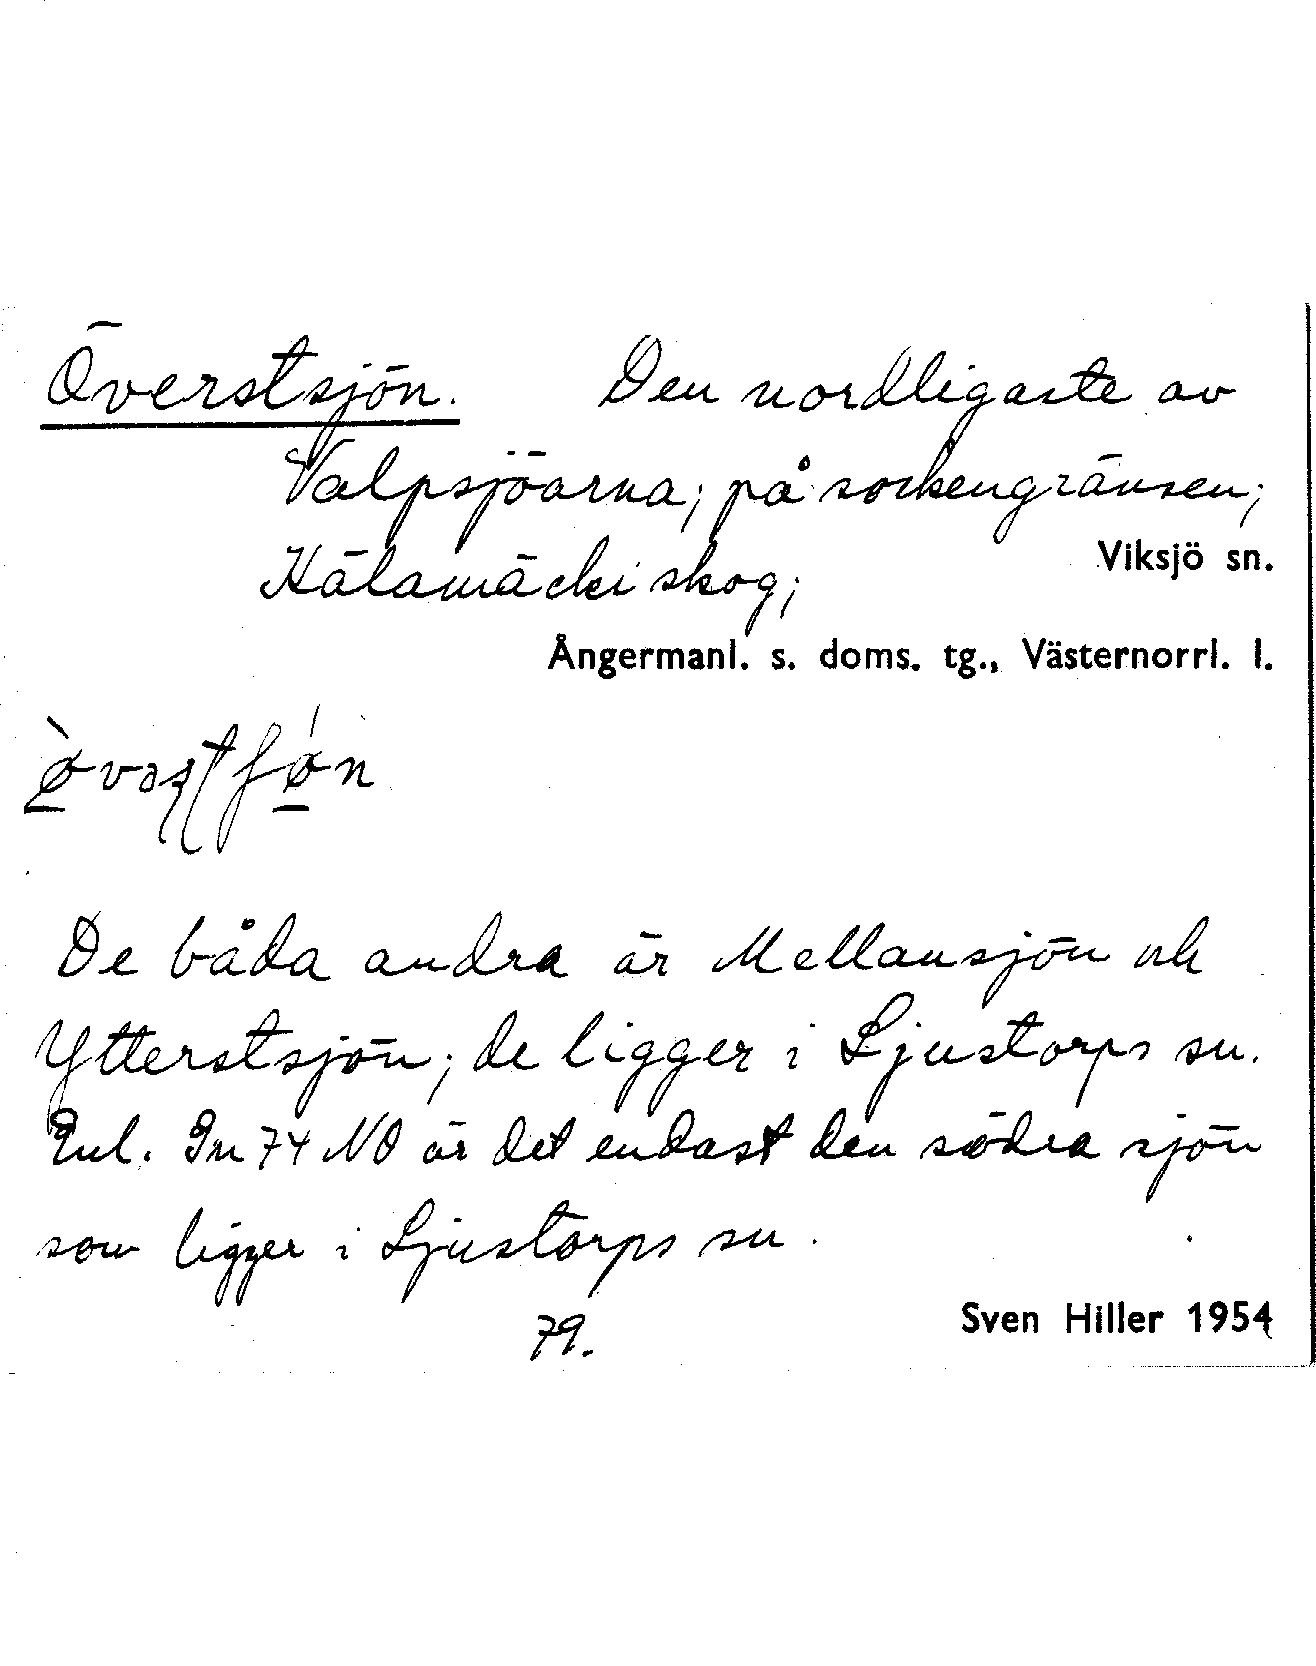 Överstsjön. Den nordligaste av
Valpsjöarna; på sockengränsen;
Viksjö sn.
Kälamäcki skog;
Ångermanl. s. doms. tg., Västernorrl. l.
De båda andra är Mellansjön och
Ytterstsjön; de ligger i Ljustorps sn.
Enl. Gn 74 NO är det endast den södra sjön
som ligger i Ljustorps sn.
79.
Sven Hiller 1954